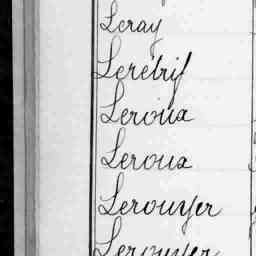 Leray
Lerétrif
Leroux
Leroux
Lerouyer
Lerouyer